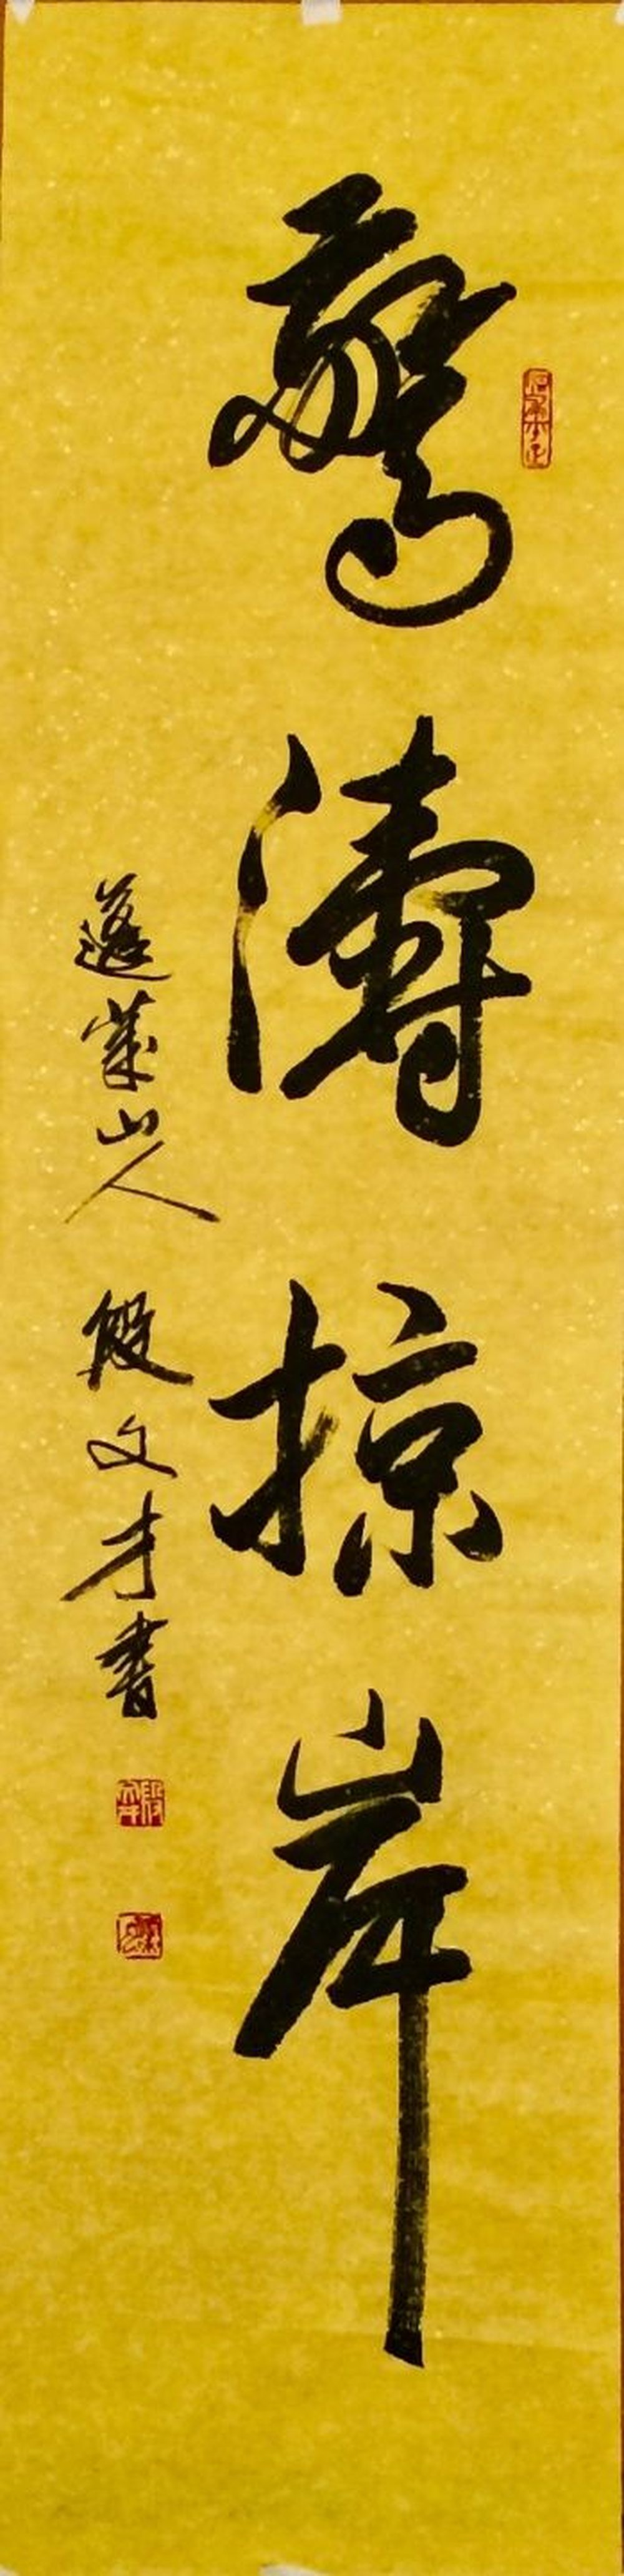 驚濤掠岸
蓬萊山人 段文才書